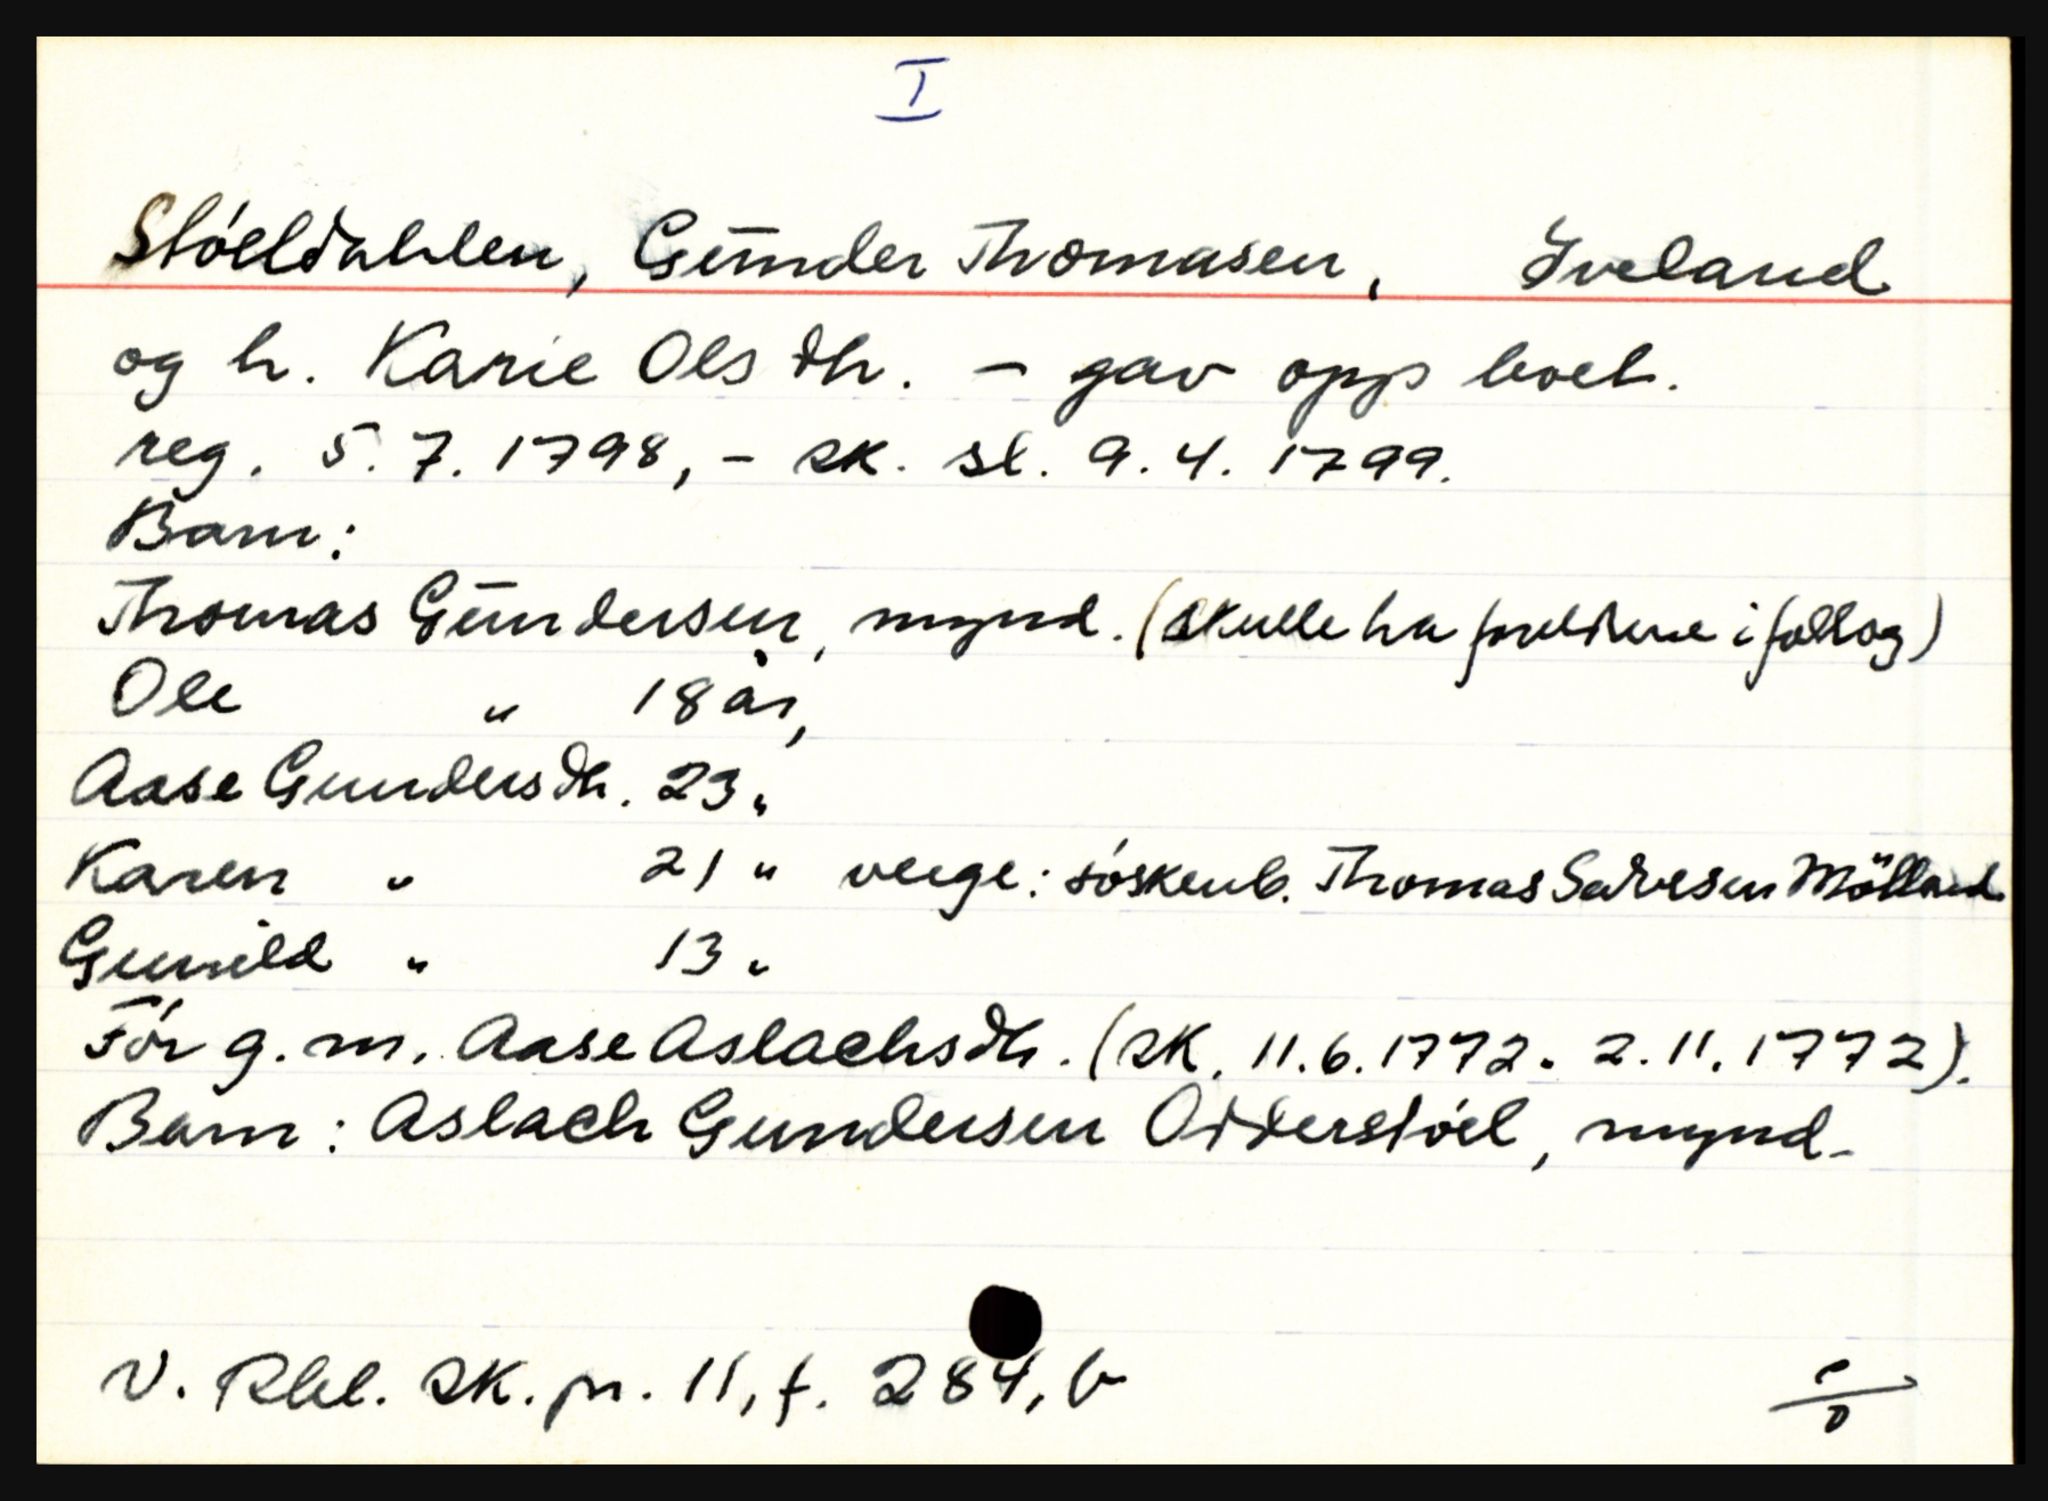 I
Støeldahlen, Gŭnder Thomasen, Iveland
og h. Karie Olsdh. - gav opp boet.
reg. 5.7.1798, - sk. sl. 9.4.1799.
Barn:
Thomas Gŭndersen, mynd. (skulle ha foreldrene i follog)
Ole " 18 år,
Aase Gundersdh. 23 "
Karen " 21 " verge: søskenb. Thomas Salvesen Mölland
Gunild " 13 "
Før g. m. Aase Aslachsdh. (sk. 11.6.1772 - 2.11.1772).
Barn: Aslach Gundersen Odderstøel, mynd.
V. Rbl. sk. pr. 11, f. 284, b